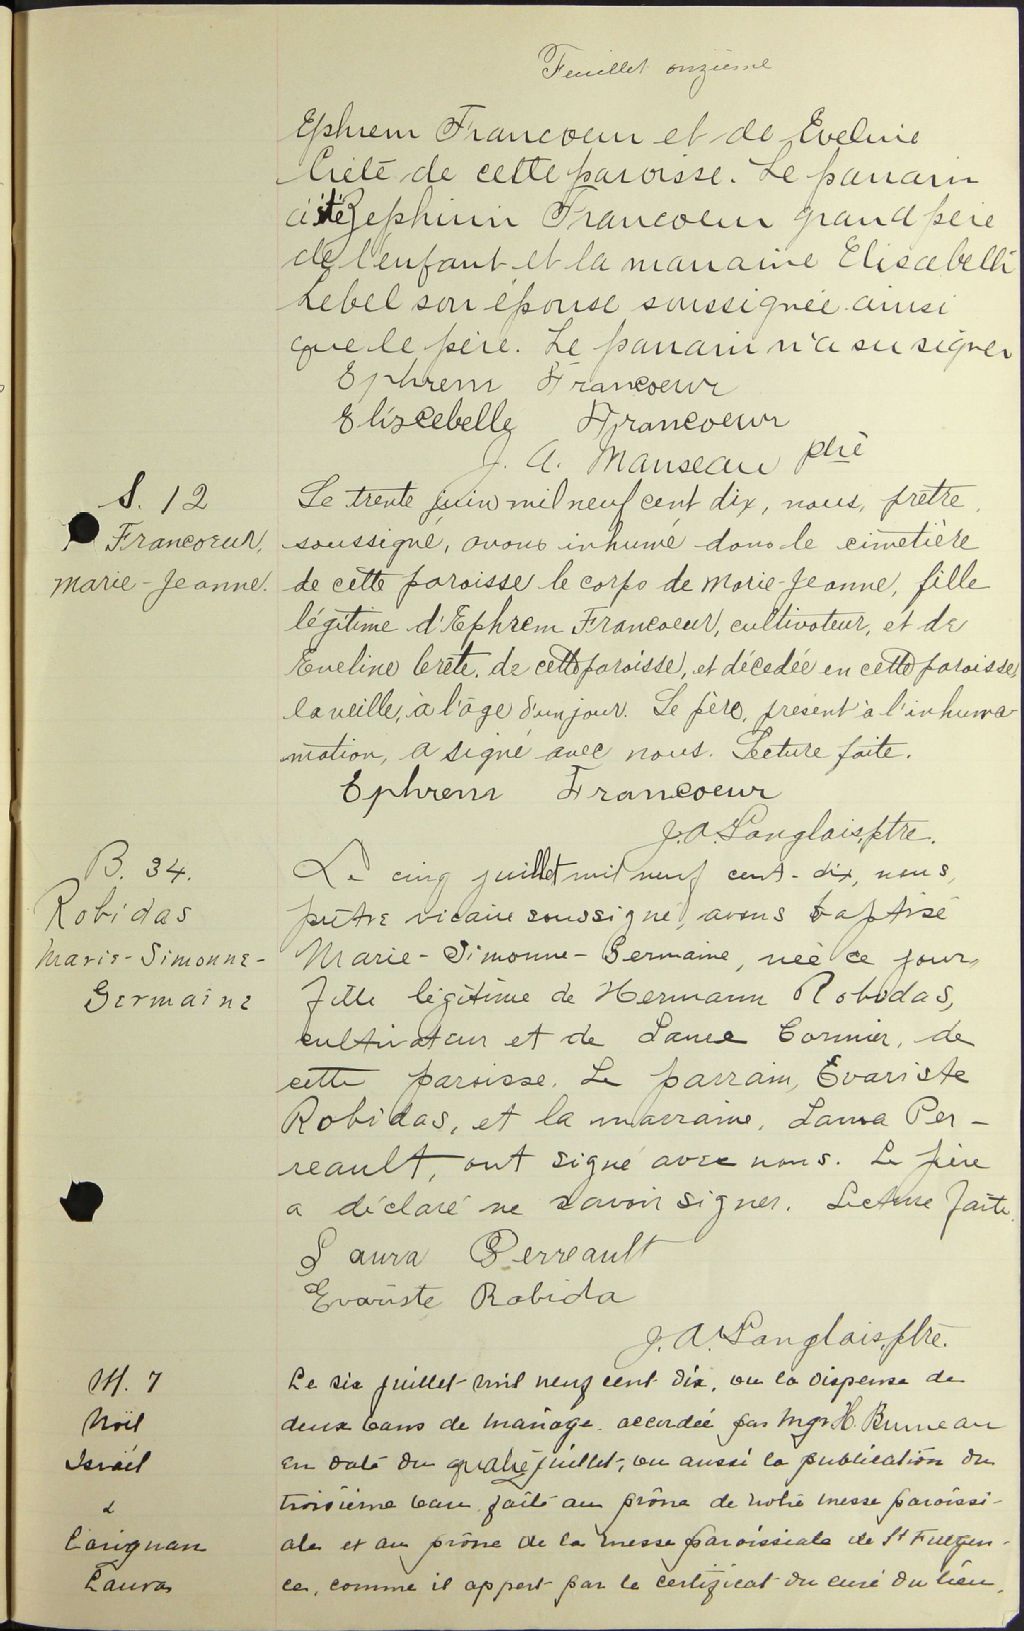 Feuillet onzième
Ephrem Francoeur et de Eveline
Crête de cette paroisse. Le parrain
a été Zephirin Francoeur grand père
de l'enfant et la marraine Elisabelle
Lebel son épouse soussignée ainsi
que le père. Le parrain n'a su signer
Ephrem Francoeur
Eliscebelle Francoeur
J. A. Manseau ptre
S. 12
Francoeur,
Marie-Jeanne.
Le trente juin mil neuf cent dix, nous, prêtre
soussigné, avons inhumé dans le cimetière
de cette paroisse le corps de Marie-Jeanne, fille
légitime d'Ephrem Francoeur, cultivateur, et de
Eveline Crête, de cette paroisse, et décedée en cette paroisse,
la veille, à l'âge d'un jour. Le père, présent à l'inhuma
mation, a signé avec nous. Lecture faite.
Ephrem Francoeur
J.A. Langlois, ptre.
B. 34.
Robidas
Marie-Simonne-
Germaine
Le cinq juillet mil neuf cent-dix, nous,
prêtre vicaire soussigné, avons baptisé
Marie-Simonne-Germaine, née ce jour,
fille légitime de Hermann Robidas,
cultivateur et de Laura Cormier, de
cette paroisse. Le parrain, Evariste
Robidas, et la marraine, Laura Per-
reault, ont signé avec nous. Le père
a déclaré ne savoir signer. Lecture faite.
Laura Perreault
Evariste Robida
J. A. Langlois, ptre.
M. 7
Noël
Israël
&
Carignan
Laura
Le six juillet mil neuf cent dix, vu la dispense de
deux bans de mariage accordée par Mgr H. Bruneau
en date du quatre juillet, vu aussi la publication du
troisième ban faite au prône de notre messe paroissi-
ale et au prône de la messe paroissiale de St Fulgen-
ce, comme il appert par le certificat du curé du lieu,